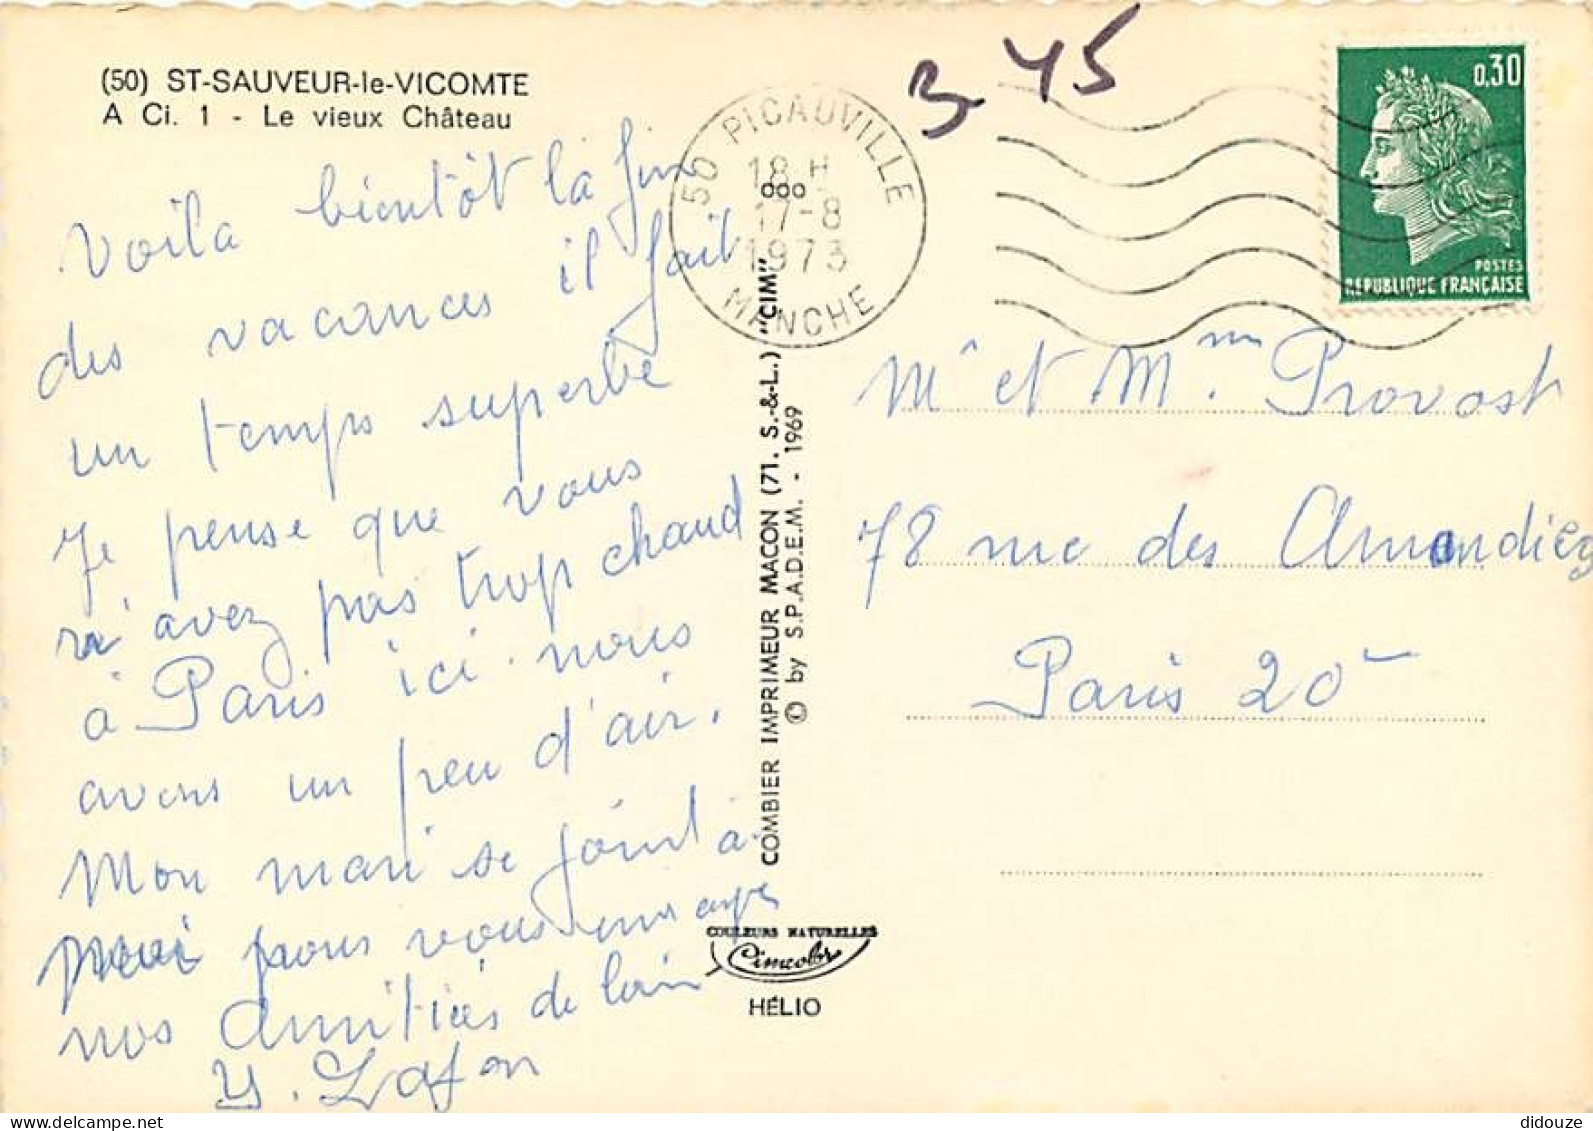 (50) ST-SAUVEUR-le-VICOMTE
A Ci. 1 - Le vieux Château
Voila bientôt la fin
des vacances il fait
un temps superbe
Je pense que vous
n'avez pas trop chaud
à Paris ici nous
avons un peu d'air.
Mon mari se joint à
moi pour vous envoyer
nos Amitiés de loin
Y. Lafon
COMBIER IMPRIMEUR MACON (71. S.-&-L.) "CIM"
© by S.P.A.D.E.M. - 1969
COULEURS NATURELLES
Cimcolor
HÉLIO
3 45
50 PICAUVILLE
18 H
000
17-8
1973
MANCHE
0,30
POSTES
RÉPUBLIQUE FRANÇAISE
Mr et Mme Provost
78 rue des Amandiers
Paris 20e
delcampe.net
didouze